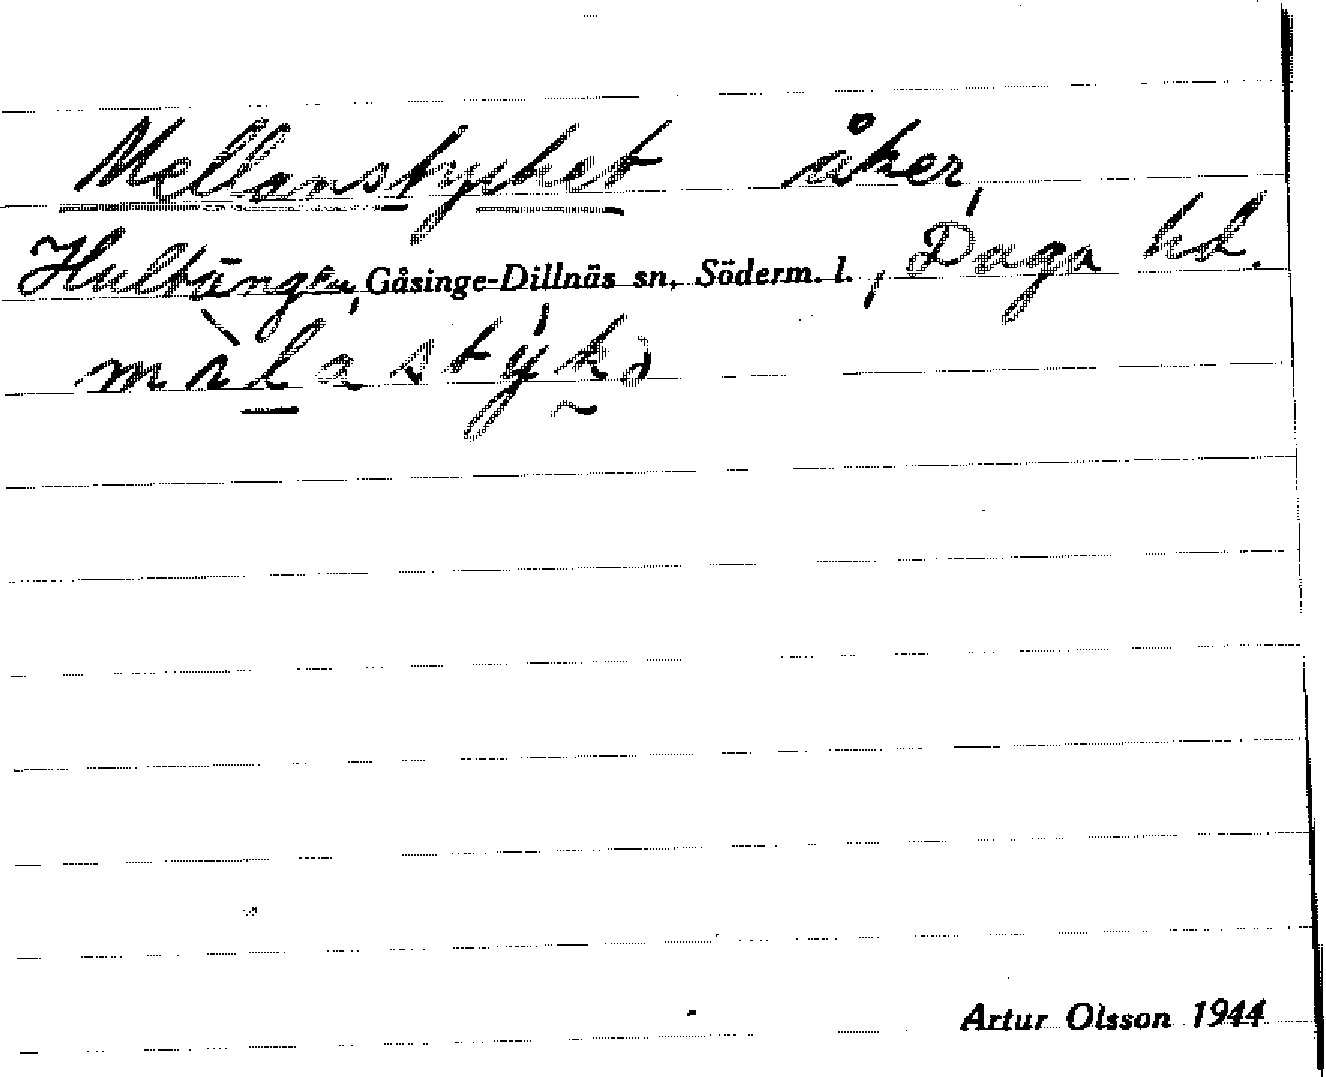 Mellanstycket åker,
Hultängen, Gåsinge-Dillnäs sn, Söderm. l., Daga hd.
Artur Olsson 1944